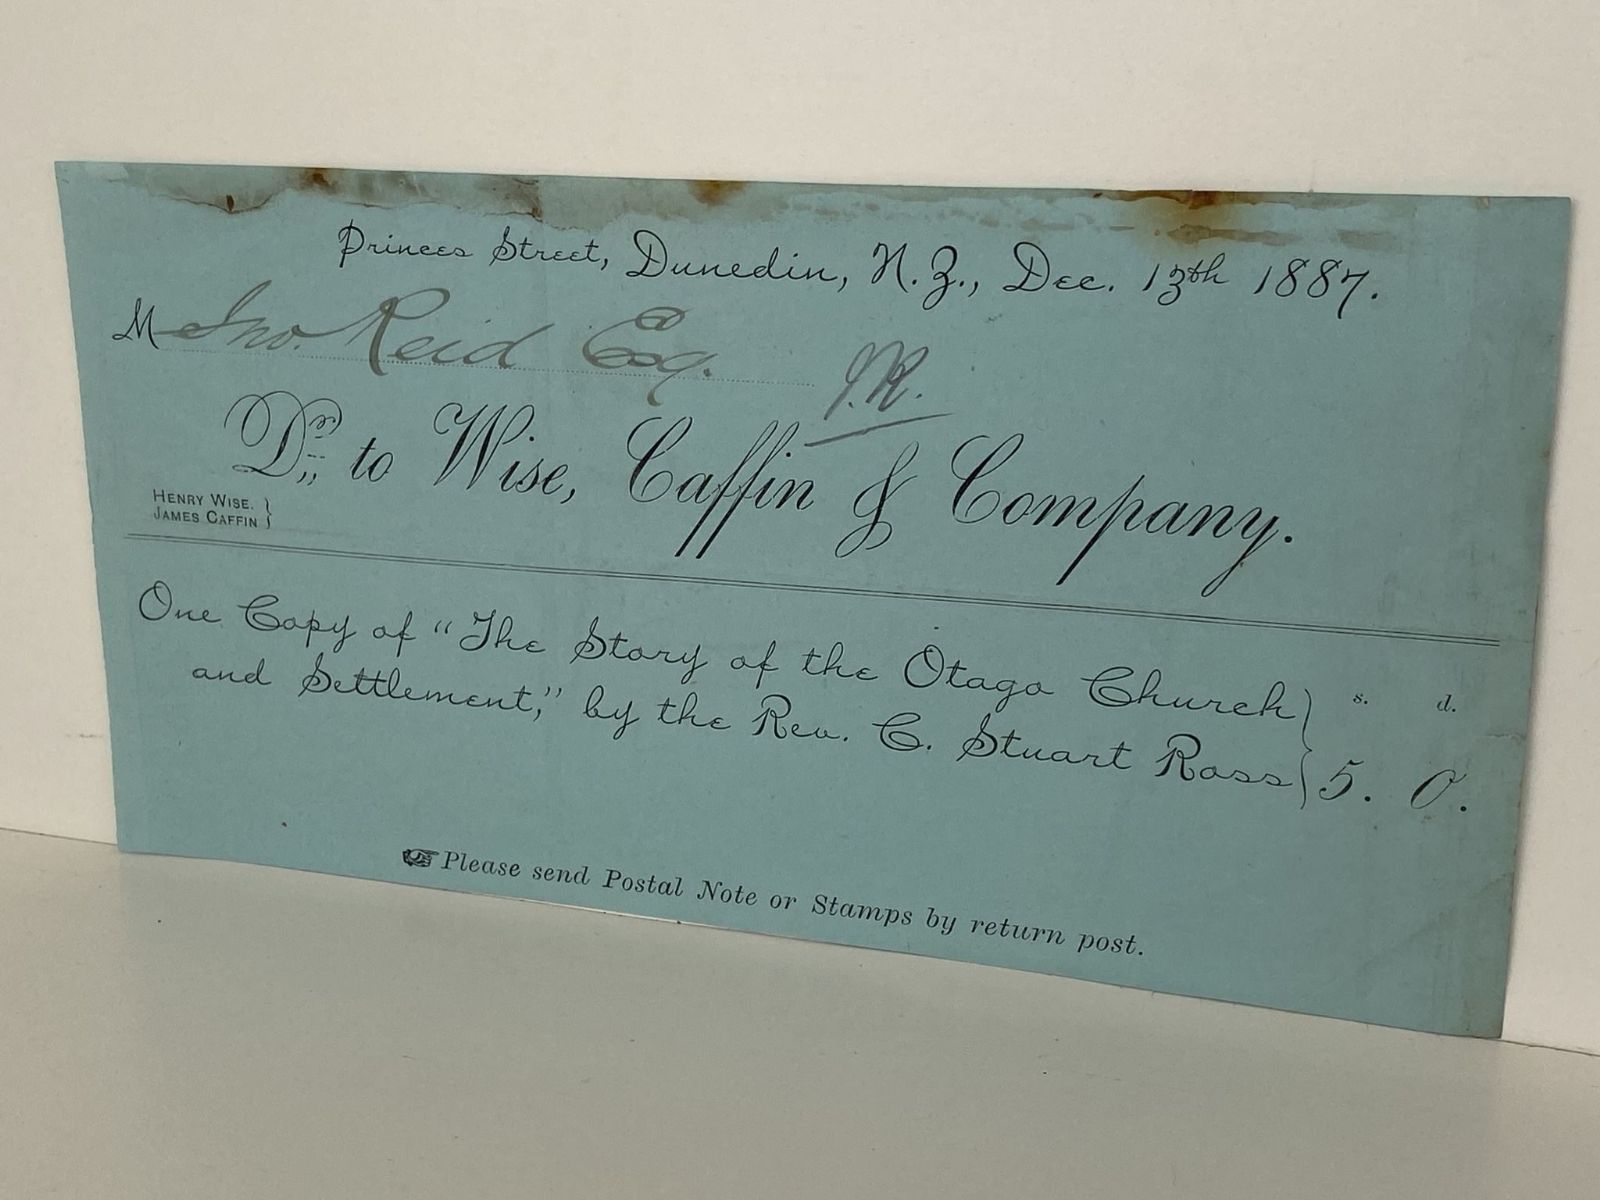 Princes Street, Dunedin, N.Z., Dec. 13th 1887.
M Jno. Reid Esq.
J.R.
Dr. to Wise, Caffin & Company.
HENRY WISE.
JAMES CAFFIN
One Copy of "The Story of the Otago Church
and Settlement," by the Rev. C. Stuart Ross
s. d.
5. 0.
Please send Postal Note or Stamps by return post.